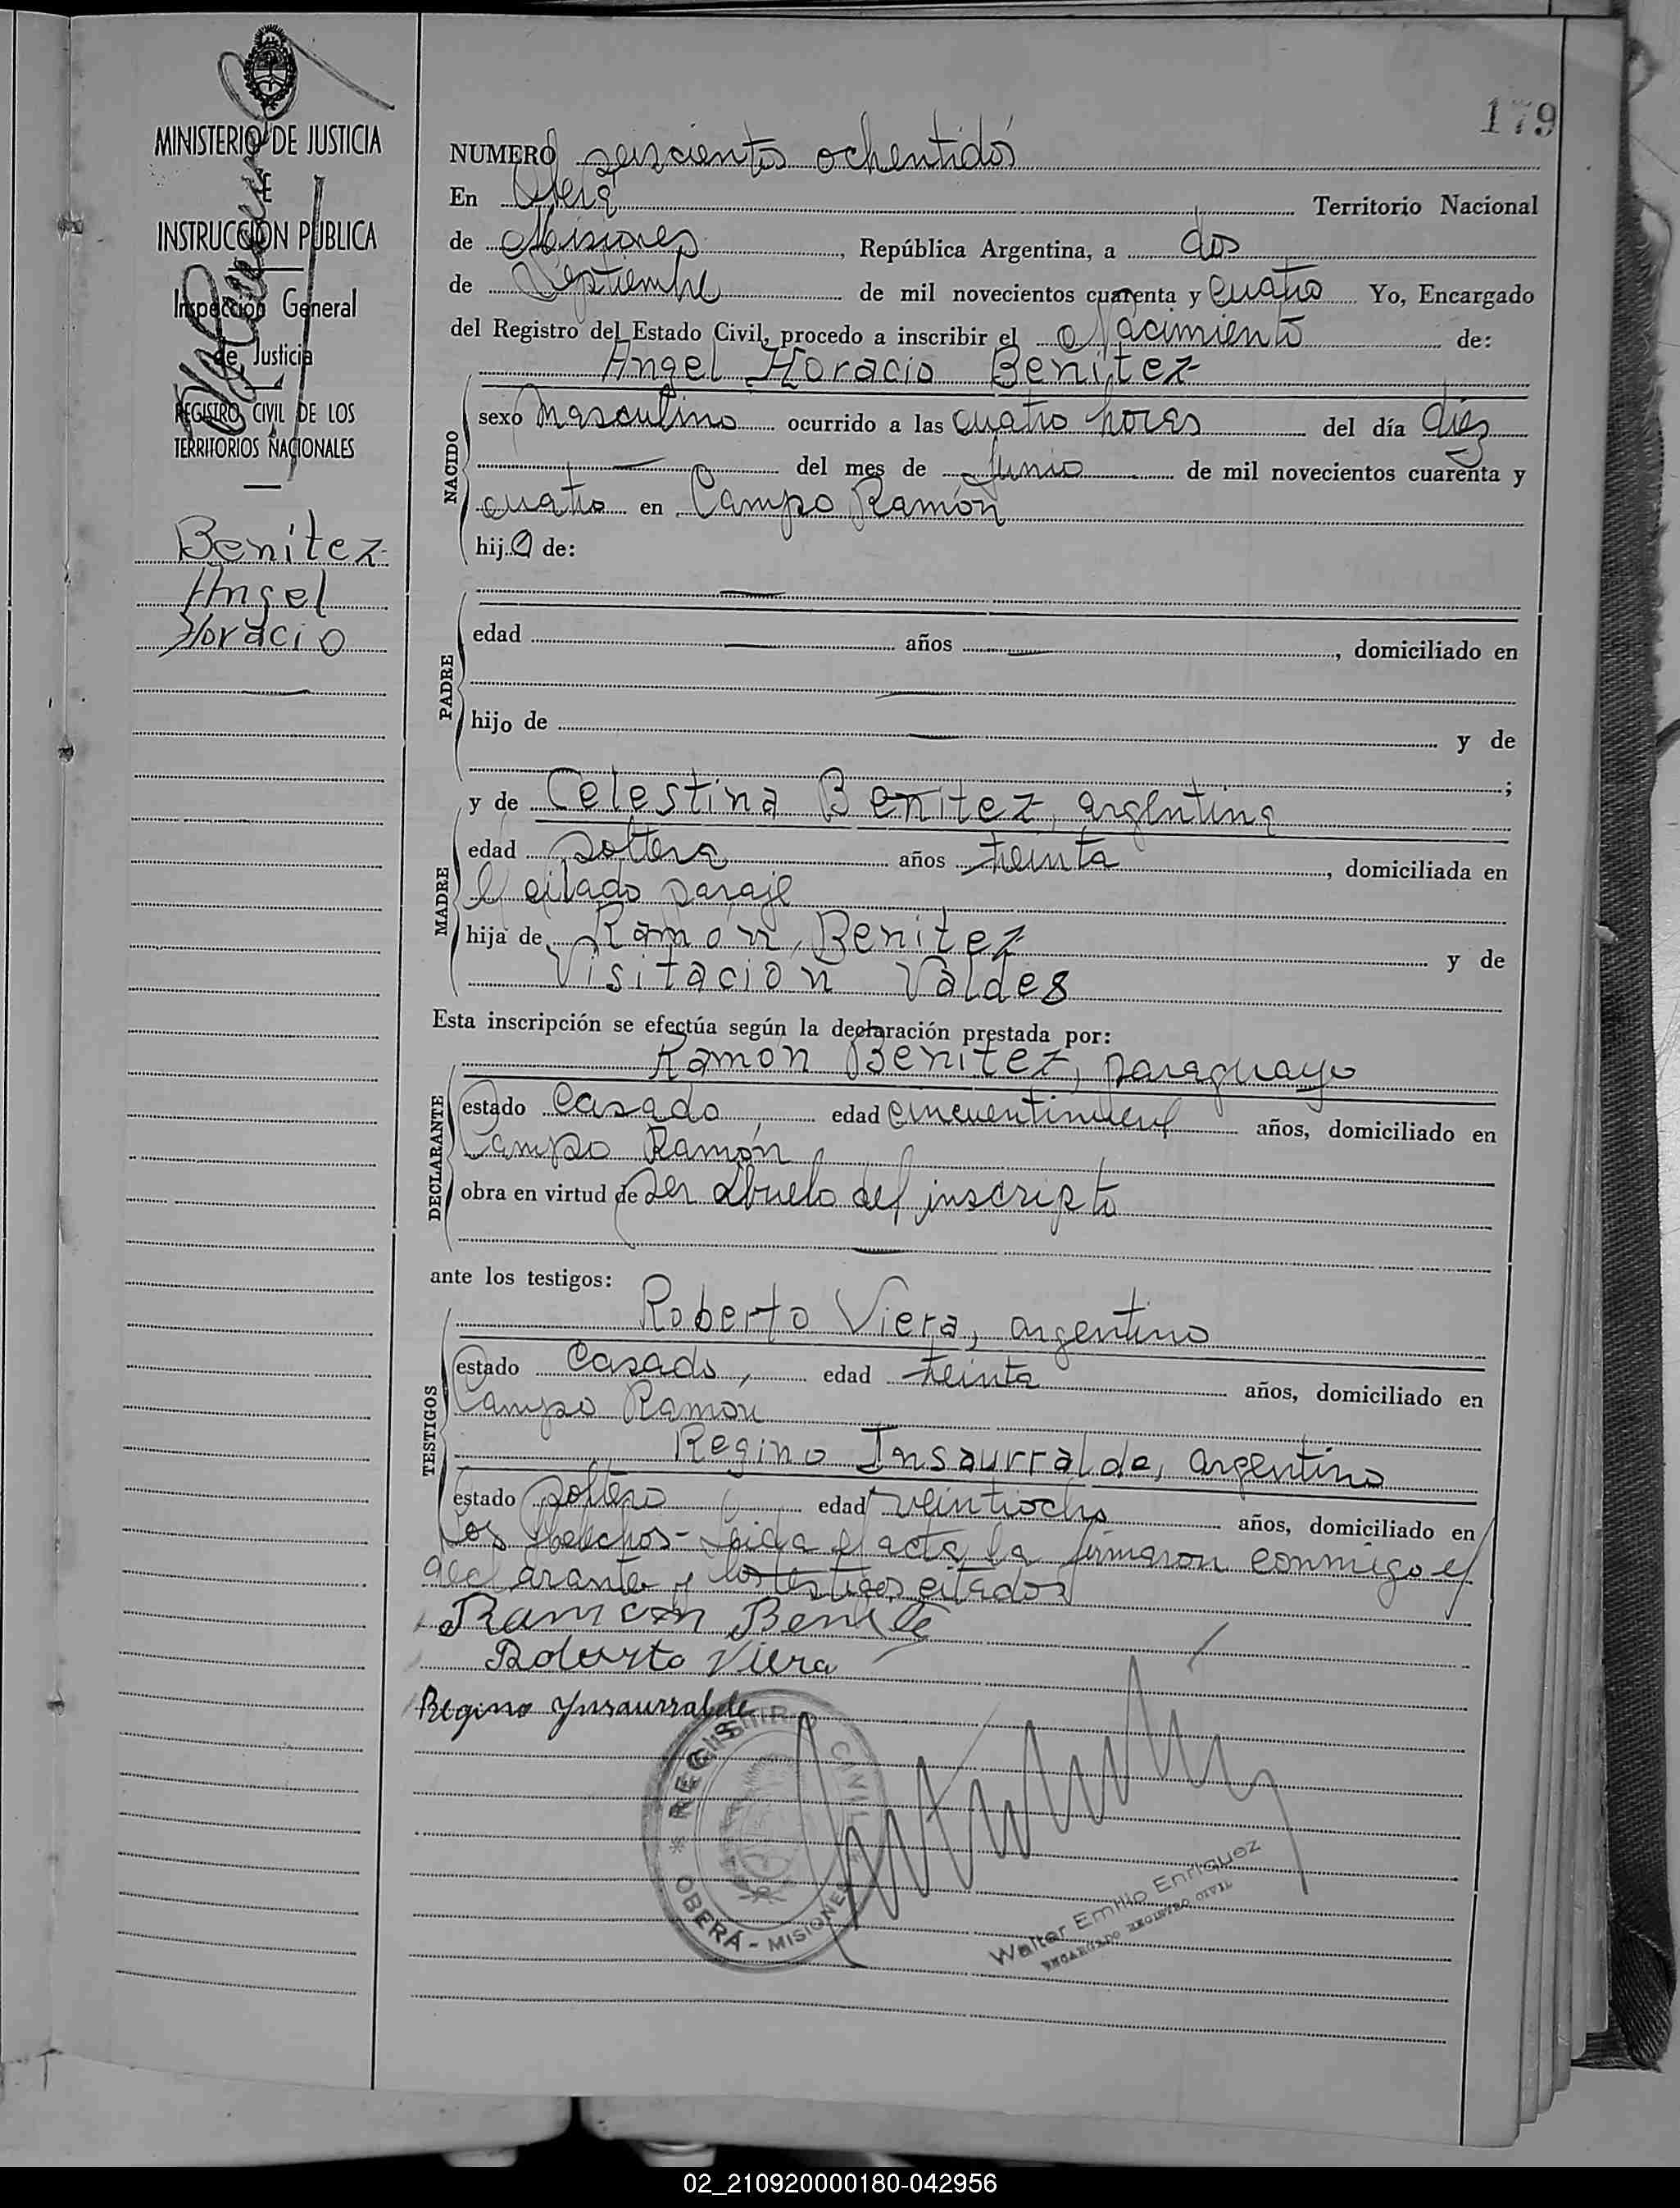 179
MINISTERIO DE JUSTICIA
E
INSTRUCCION PUBLICA
Inspección General
de Justicia
REGISTRO CIVIL DE LOS
TERRITORIOS NACIONALES
Benitez
Angel
Horacio
NUMERO seiscientos ochentidós
En Oberá Territorio Nacional
de Misiones, República Argentina, a dos
de Septiembre de mil novecientos cuarenta y cuatro Yo, Encargado
del Registro del Estado Civil, procedo a inscribir el Nacimiento de:
Angel Horacio Benitez
NACIDO
sexo Masculino ocurrido a las cuatro horas del día diez
del mes de Junio de mil novecientos cuarenta y
cuatro en Campo Ramón
hijo de:
PADRE
edad años , domiciliado en
hijo de y de
;
MADRE
y de Celestina Benitez, argentina
edad soltera años treinta, domiciliada en
el citado paraje
hija de Ramón Benitez y de
Visitacion Valdes
Esta inscripción se efectúa según la declaración prestada por:
DECLARANTE
Ramón Benitez, paraguayo
estado Casado, edad cincuentinueve años, domiciliado en
Campo Ramón
obra en virtud de ser abuelo del inscripto
ante los testigos:
TESTIGOS
Roberto Viera, argentino
estado Casado, edad treinta años, domiciliado en
Campo Ramon
Regino Insaurralde, argentino
estado soltero edad veintiocho años, domiciliado en
Los Helechos - Leida el acta, la firmaron conmigo el
declarante y los testigos citados
Ramon Benite
Roberto Viera
Regino Ynsaurralde
REGISTRO CIVIL
* OBERÁ - MISIONES
Walter Emilio Enriquez
ENCARGADO REGISTRO CIVIL
02_210920000180-042956